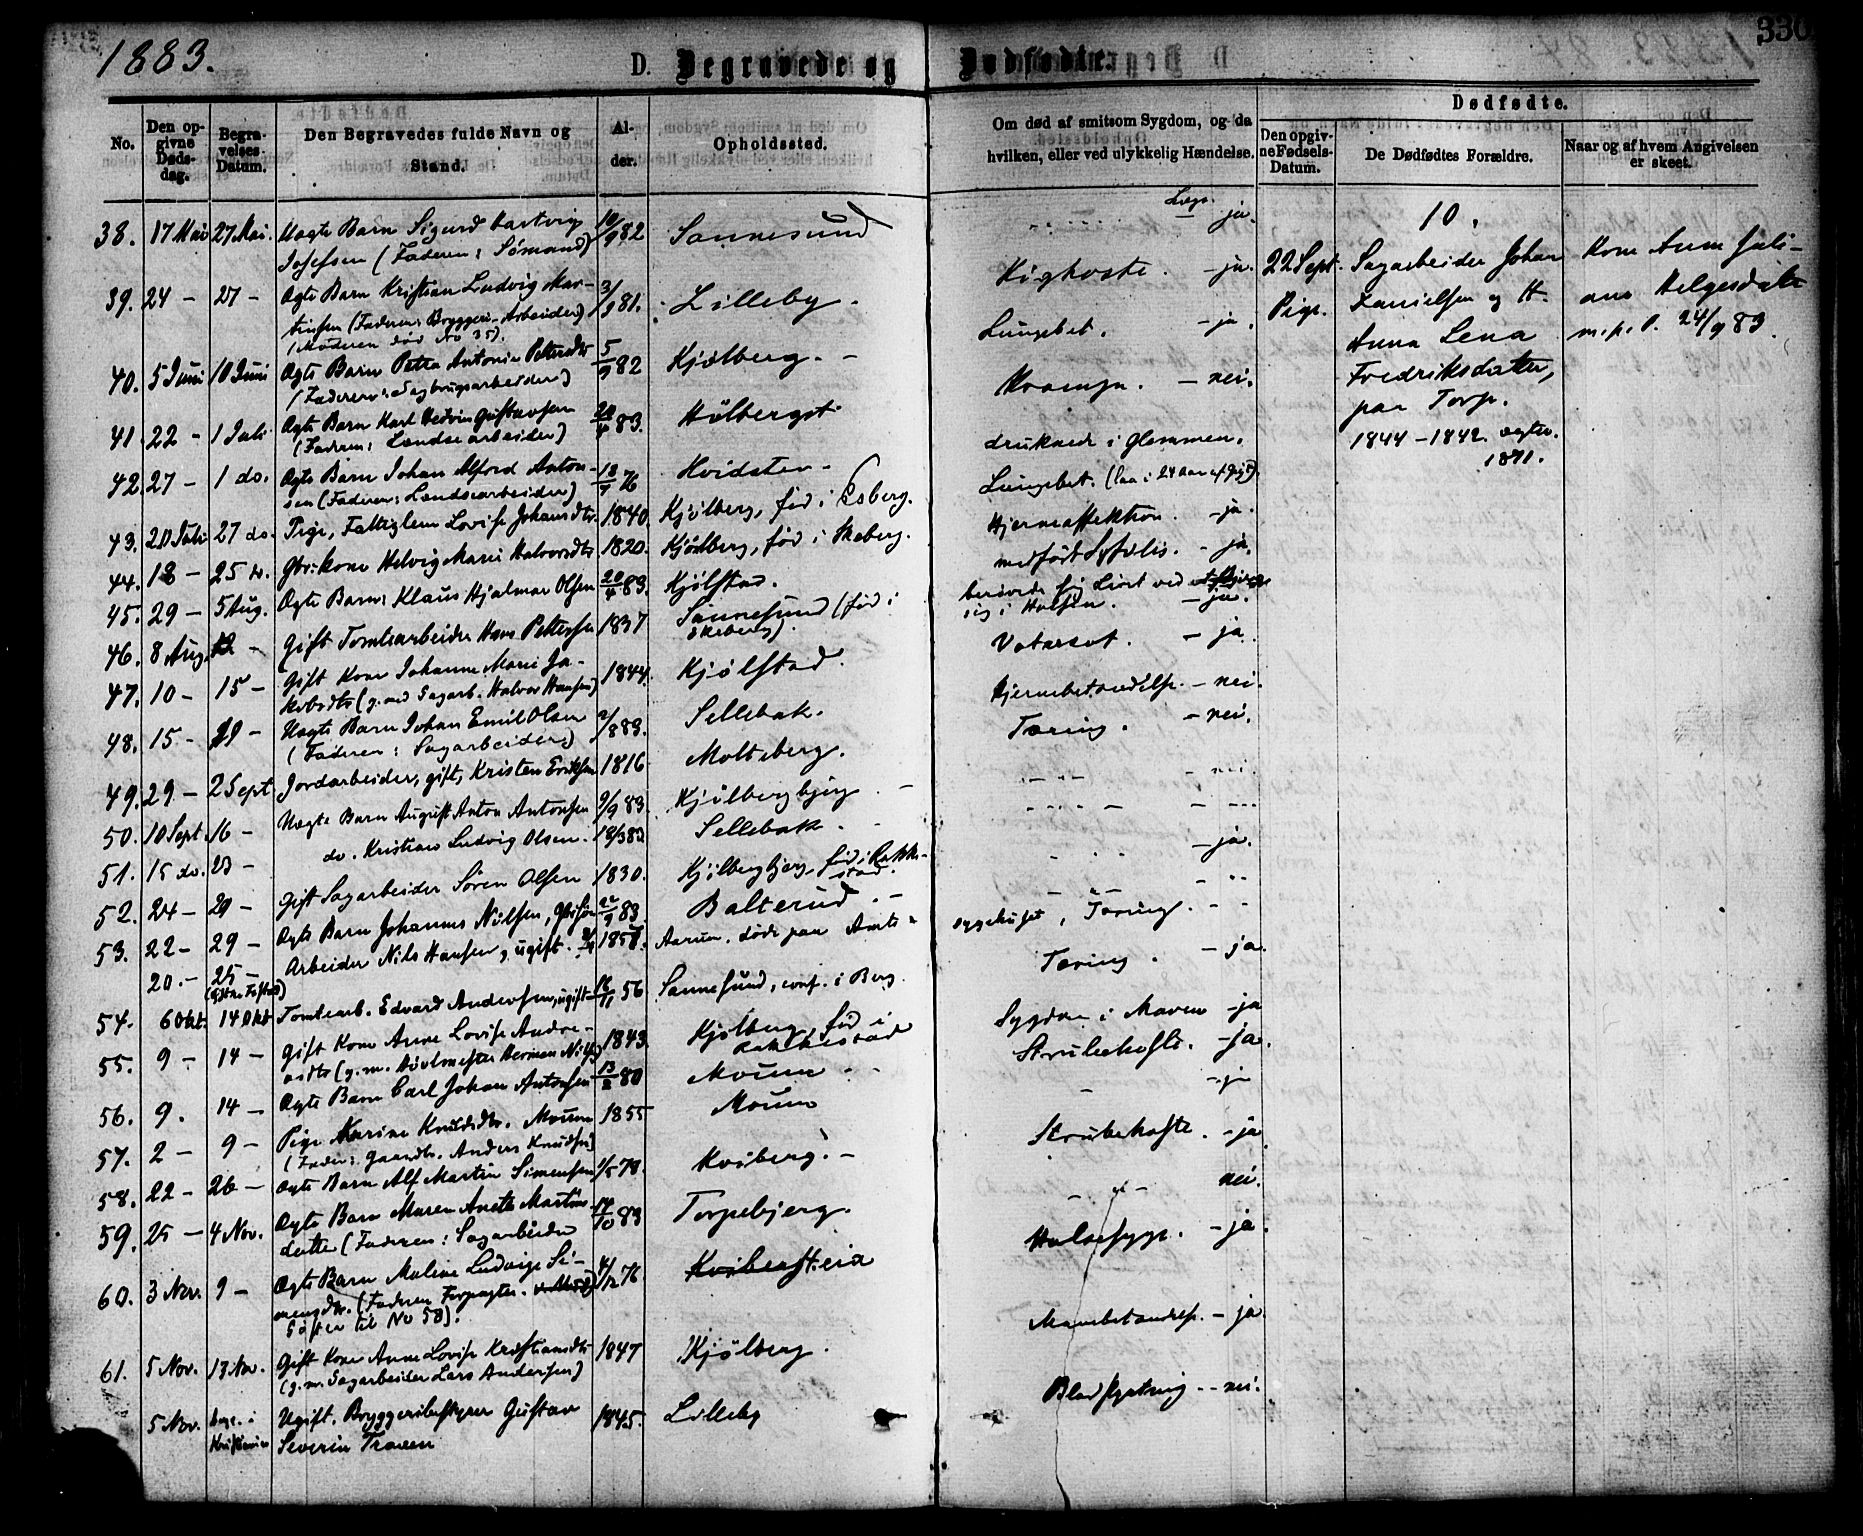 1883.
D. Begravede og Dødfødte.
330
No.
Den opgivne Dødsdag.
Begravelses-Datum.
Den Begravedes fulde Navn og Stand.
Alder.
Opholdssted.
Om død af smitsom Sygdom, og da hvilken, eller ved ulykkelig Hændelse.
Dødfødte.
Den opgivne Fødsels-Datum.
De Dødfødtes Forældre.
Naar og af hvem Angivelsen er skeet.
38. 17 Mai 27 Mai. Uægte Barn Sigurd Hartvig 10/9 82 Sannesund
Josefsen (Faderen: Sømand)
39. 24 - 27 - Ægte Barn Kristian Ludvig Mar- 3/9 81. Lilleby.
tinsen (Faderen: Bryggeri-Arbeider)
(Moderen død No 35).
40. 5 Juni 10 Juni Ægte Barn Petra Antonie Pettersdtr 5/9 82 Kjølberg. -
(Faderen: Sagbrugsarbeider)
41. 22 - 1 Juli Ægte Barn Karl Hedvin Gustavsen 83.
(Faderen: Landsearbeider)
42. 27 - 1 do. Ægte Barn Johan Alfred Anton- 76 Hvidsten -
sen (Faderen: Landsearbeider)
43. 20 Juli 27 do. Pige, Fattiglem Lovise Johansdtr. 1840. Kjølberg, fød i
44. 18 - 25 Gbr:kone Helvig Marie Halvorsdtr 1820. Kjølberg, fød i Skeberg.
45. 29 - 5 Aug. Ægte Barn: Klaus Hjalmar Olsen 20/4 83. Kjølstad.
46. 8 Aug. 12 - Gift Tomtearbeider Hans Pettersen 1837 Sannesund (fød i
Skeberg).
47. 10 - 15 - Gift Kone Johanne Marie Ja- 1844. Kjølstad.
kobsdtr (g. med Sagarb. Halvor Hansen)
48. 15 - - Uægte Barn Johan Emil Olsen 83. Sellebak.
(Faderen: Sagarbeider)
49. 29 - 2 Sept. Jordarbeider, gift, Kristen Eriksen 1816 Molteberg.
50. 10 Sept. 16 - Uægte Barn August Anton Antonsen 2/9 83. Kjølbergbjerg. -
51. 15 do. 23 - do. Kristian Ludvig Olsen. 18/3 83 Sellebak. -
52. 24 - 29 - Gift Sagarbeider Søren Olsen 1830. Kjølbergbjerg, fød i Rakke-
stad.
53. 22 - 29 - Ægte Barn Johannes Nilsen, 83. Balterud. -
20. - 25 - Arbeider Nils Hansen, ugift. 1857. Aarum. døde paa Amts -
54. 6 Okt. 14 Okt Tomtearb. Edvard Andersen, ugift 16/11 56 Sannesund, conf. i Berg.
55. 9 - 14 - Gift Kone Anne Lovise Andre- 1843. Kjølberg, fød i
asdtr (g. m. Høvlmester Herman Nils) Rakkestad
56. 9. 14 - Ægte Barn Carl Johan Antonsen 13/2 80 Moum - -
57. 2 - 9 - Pige Karine Knudsdtr. Moum 1855 Moum
(Fader: Gaardbr. Anders Knudsen)
58. 22 - 26 - Ægte Barn Alf Martin Simensen 1/5 78. Kviberg. -
59. 25 - 4 Nov. Ægte Barn Maren Anette Martins- 14/10 83 Torpebjerg.
datter (Faderen: Sagarbeider
60. 3 Nov. 9 - Ægte Barn Maline Ludvige Si- 4/12 76.
mensdtr. (Faderen Forpagter.
Søster til No 58).
61. 5 Nov. 13 Nov. Gift Kone Anne Lovise Kristiansdtr 1847 Kjølberg.
(g. m. Sagarbeider Lars Andersen)
5 Nov. begr. i Ugift. Bryggeribestyrer Gustav 1845. Lilleby
Kristiania Severin Traaen
Læge
- ja.
Kighoste. - ja.
Lungebet. - ja.
Krampe. - nei.
druknede i Glommen.
Lungebet.
Hjerneaffektion. - ja.
medfødt Syfilis. - ja.
berøvede sig Livet ved
sig i Halsen. - ja.
Vatersot. - ja.
Hjernebetændelse - nei.
Tæring. - nei.
- nei.
- ja.
sygehuset, Tæring. - -
Tæring. - ja.
Sygdom i Maven - ja
Strubehoste. - ja.
- ja
Strubehoste. - ja
- " - nei.
Halssyge. - ja.
Mavebetændelse. - ja.
Blodstyrtning - - nei.
10.
22 Sept. Sagarbeider Johan
Pige. Danielsen og H.
Anna Lena
Fredriksdatter,
paa Torp.
1844 - 1842. ægtev.
1871.
Kone Anne Juli-
ane Helgesdatter
m. p. P. 24/9 83.